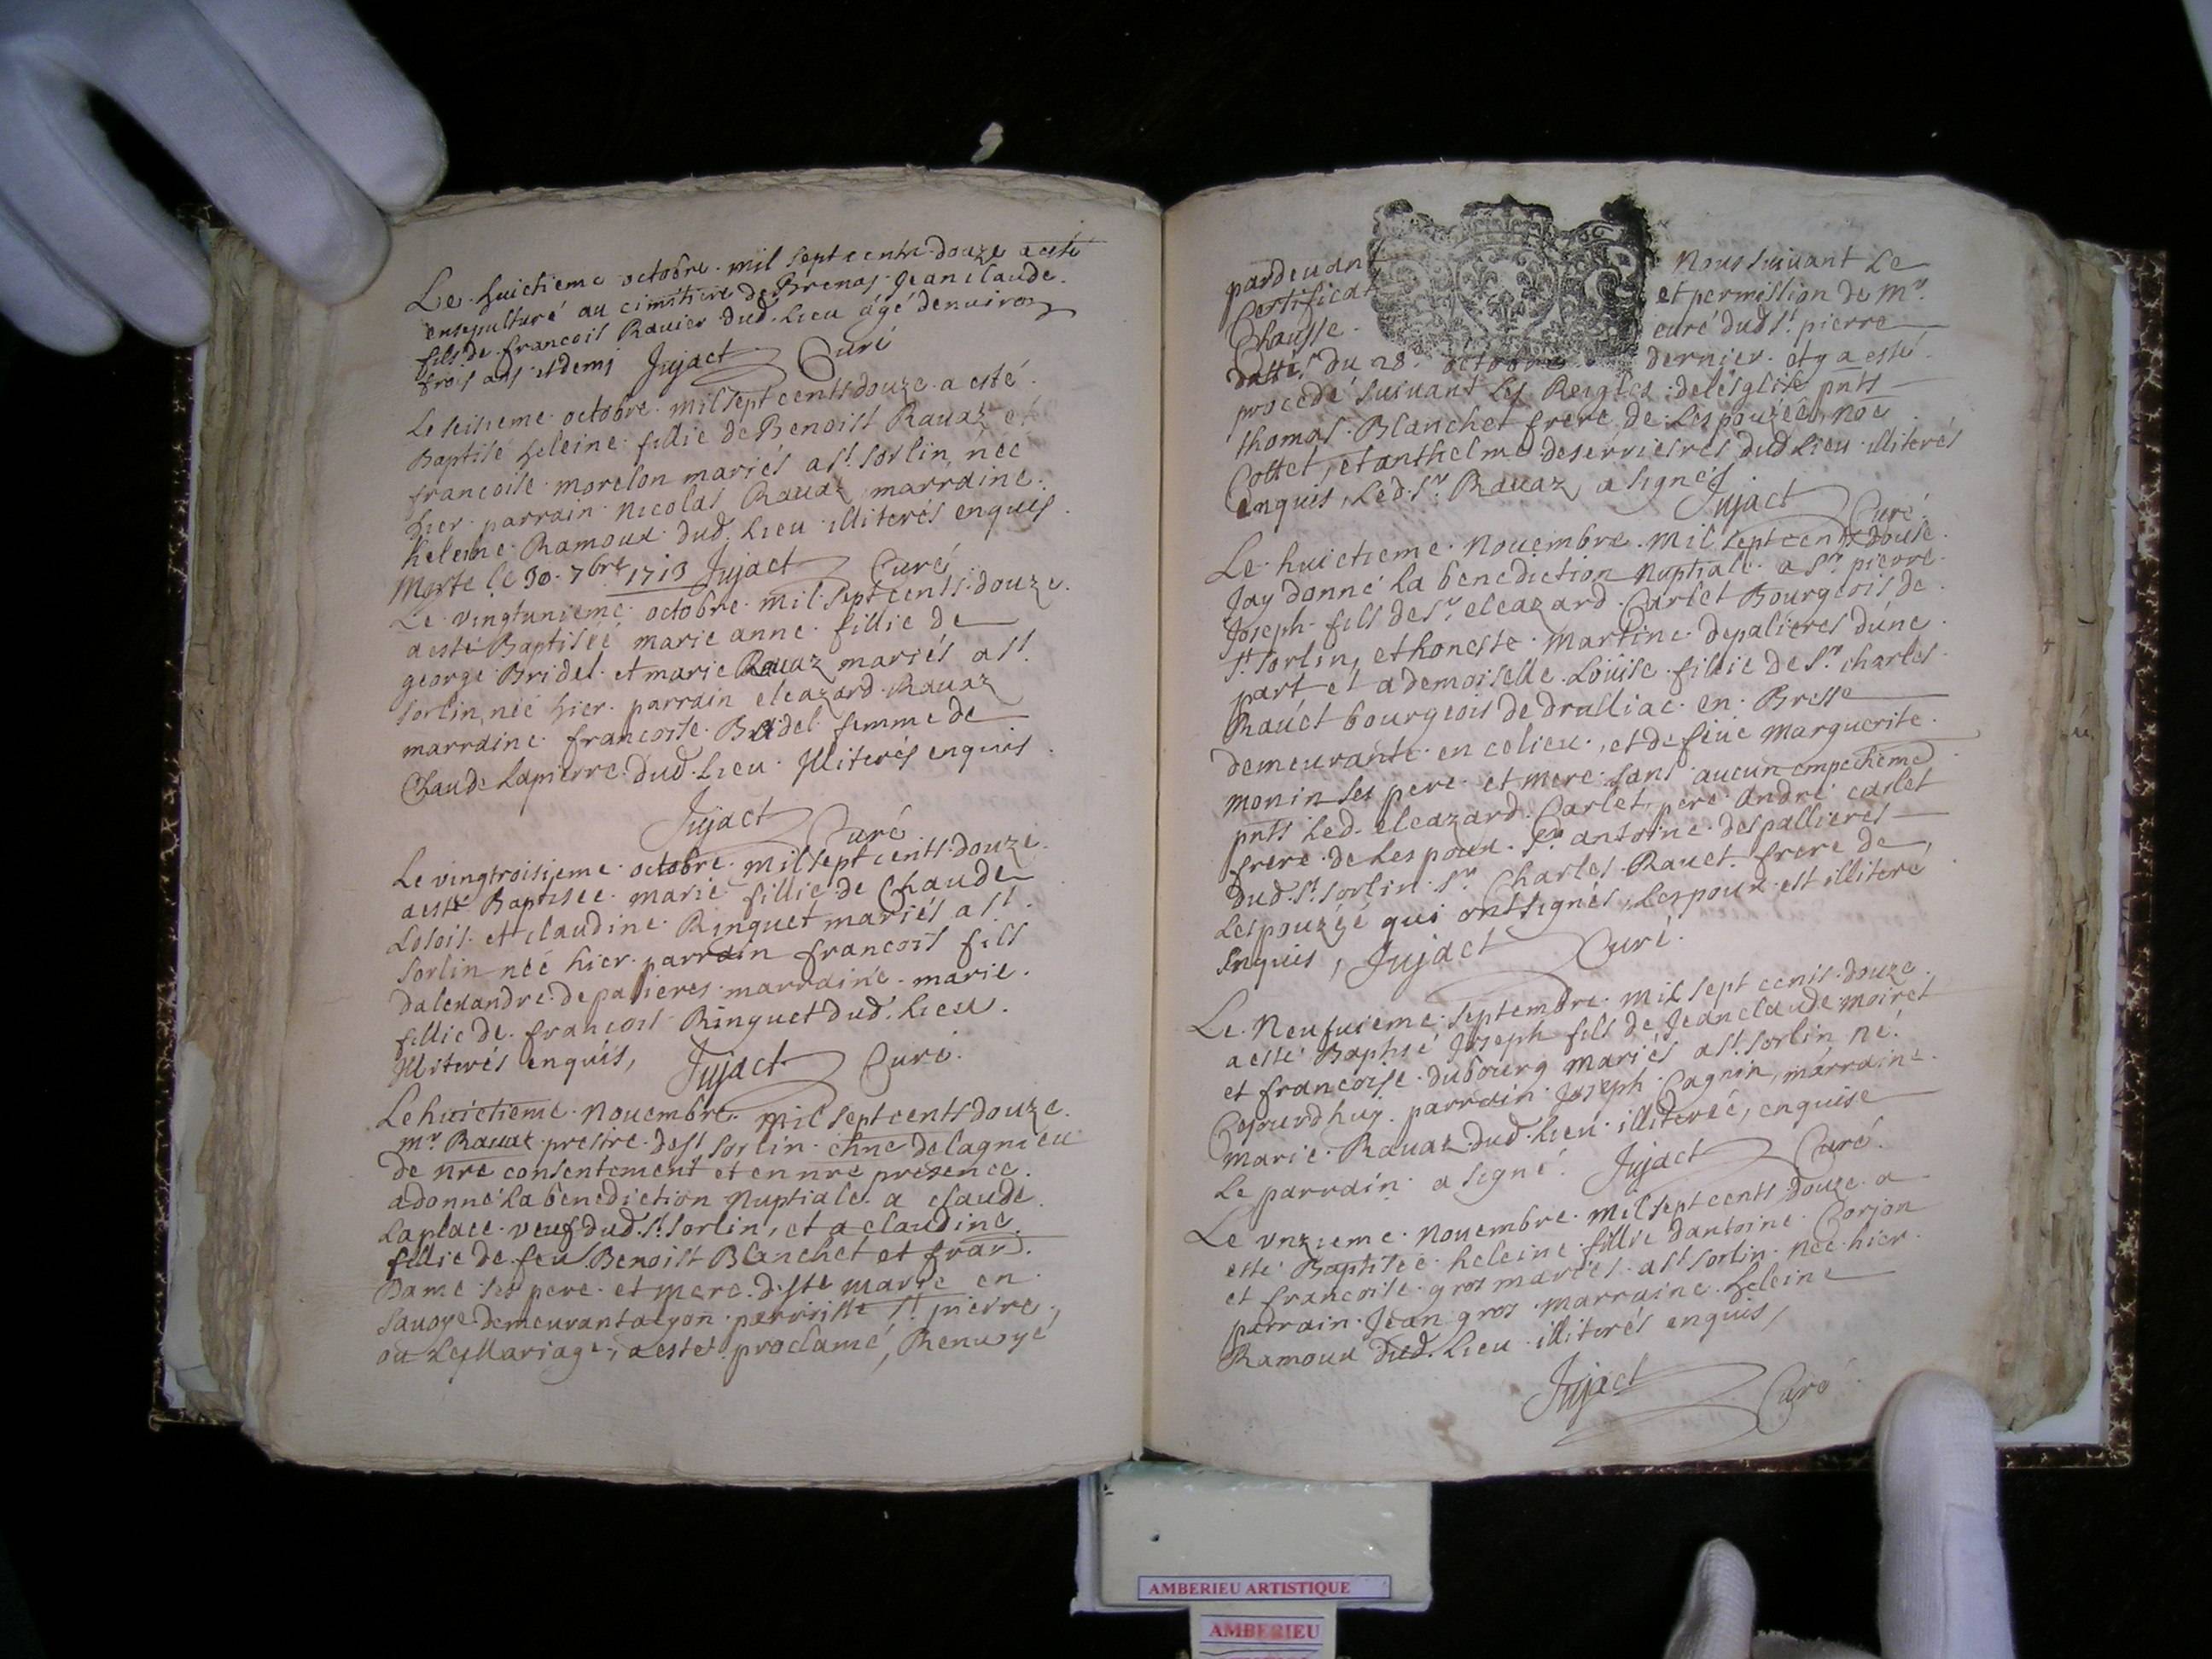 Le huictieme octobre mil sept cents douze a esté
ensepulturé au cimitiere de Brenas Jean claude
fils de francois Ravier dud. Lieu âgé denviron
trois ans et demj Jujact Curé
Le seisieme octobre mil sept cents douze a esté
Baptisé heleine fillie de Benoist Ravaz et
francoise morelon mariés a st. sorlin née
hier parrain Nicolas Ravaz marraine
heleine Ramoux dud. Lieu illiterés enquis
Morte le 30. 7bre 1713 Jujact Curé
Le vingtunieme octobre mil sept cents douze
a esté Baptiséé marie anne fillie de
george Bridel et marie Ravaz mariés a st.
sorlin, néé hier parrain eleazard Ravaz
marraine francoise Bridel femme de
Claude Lapierre dud. Lieu Illiterés enquis
Jujact Curé
Le vingtroisieme octobre mil sept cents douze
a esté Baptisee marie fillie de Claude
Losois et claudine Ringuet mariés a st.
sorlin néé hier parrain francois fils
dalexandre depalieres marraine marie
fillie de francois Ringuet dud. Lieu
Illiterés enquis, Jujact Curé
Le huictieme Novembre mil sept cents douze
mr. Ravaz prestre de st sorlin chne de lagnieu
de nre consentement et en nre presence
a donné la benediction Nuptiale a claude
Laplace veuf dud. st. sorlin, et a claudine
fillie de feu Benoist Blanchet et fran.
Dame ses pere et mere de ste marie en
savoye demeurant a lyon parroisse st. pierre
ou Les Mariage, a estet proclamé, Renvoyé
pardevant Nous suivant Le
Certificat et permission de Mr.
Chausse curé dud. st. pierre
dattés du 28e octobre dernier et y a esté
procedé suivant Les Reigles de lésglise pnts
thomas Blanchet frere de Lespouzéé, Noé
Cottet, et anthelme deserriesres dud Lieu illiterés
enquis, Led. sr. Ravaz a signéz
Jujact Curé
Le huictieme Novembre mil sept cents douse
Jay donné la benediction Nuptiale a sr. pierre
Joseph fils de sr. eleazard Carlet Bourgeois de
st. sorlin, et honeste Martine depalieres dúne
part et a demoiselle Loüise fillie de sr. charles
Ravet bourgeois de drulliac en Bresse
demeurante en ce lieu, et de feüe Marguerite
monin ses pere et mere sans aucun empecheme
pnts Led. eleazard Carlet, pere André carlet
frere de Lespoux. sr. antoine despallieres
dud. st. sorlin sr. Charles Ravet frere de
Lespouzéé qui ont signés, Lespoux est illiteré
Enquis, Jujact Curé
Le Neufuieme septembre mil sept cents douze
a esté Baptisé Joseph fils de Jean claude moiret
et francoise dubourg mariés a st. sorlin né
Cejourdhuy parrain Joseph Cagnin, marraine
Marie Ravaz dud. Lieu illiteréé, enquise
Le parrain a signé. Jujact Curé
Le unzieme Novembre mil sept cents douze a
esté Baptiséé heleine fillie dantoine Corjon
et francoise gros mariés a st. sorlin néé hier
parrain Jean gros marraine heleine
Ramoux dud. Lieu illiterés enquis,
Jujact Curé
AMBERIEU ARTISTIQUE
AMBERIEU